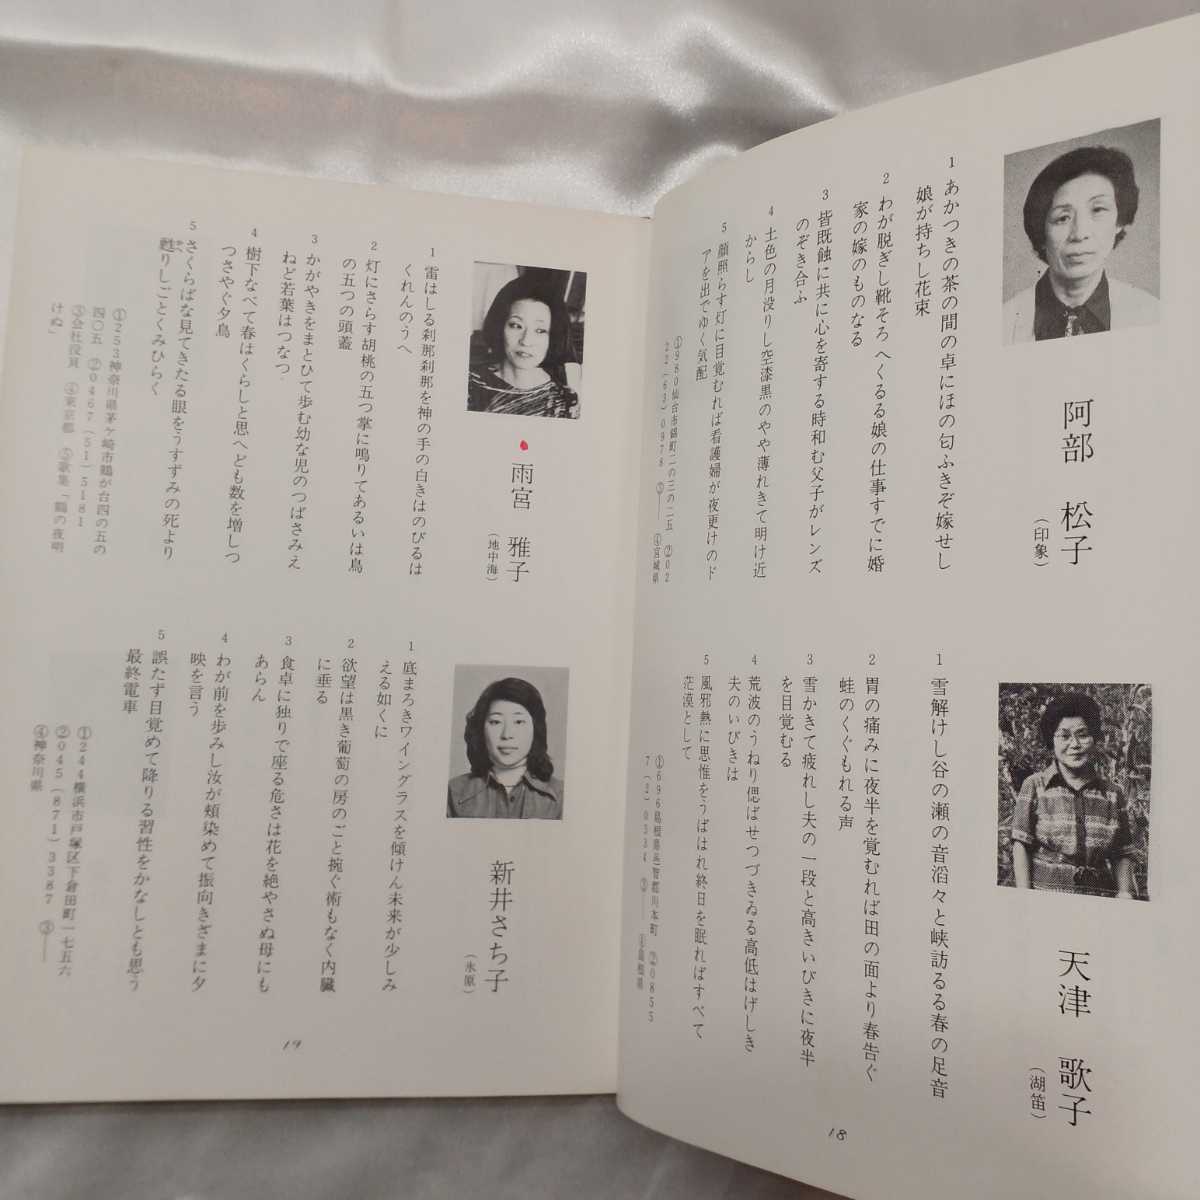 阿部 松子
(印象)
1 あかつきの茶の間の卓にほの匂ふきぞ嫁せし
娘が持ちし花束
2 わが脱ぎし靴そろへくるる娘の仕事すでに婚
家の嫁のものなる
3 皆既蝕に共に心を寄する時和む父子がレンズ
のぞき合ふ
4 土色の月没りし空漆黒のやや薄れきて明け近
からし
5 顔照らす灯に目覚むれば看護婦が夜更けのド
アを出でゆく気配
①980仙台市錦町二の三の二五 ②02
22(63)0978 ③―― ④宮城県
天津 歌子
(湖笛)
1 雪解けし谷の瀬の音滔々と峡訪るる春の足音
2 胃の痛みに夜半を覚むれば田の面より春告ぐ
蛙のくぐもれる声
3 雪かきて疲れし夫の一段と高きいびきに夜半
を目覚むる
4 荒波のうねり偲ばせつづきゐる高低はげしき
夫のいびきは
5 風邪熱に思惟をうばはれ終日を眠ればすべて
茫漠として
①696島根県邑智郡川本町 ②0855
7(2)0534 ③―― ④島根県
18
雨宮 雅子
(地中海)
1 雷はしる刹那刹那を神の手の白きはのびるは
くれんのうへ
2 灯にさらす胡桃の五つ掌に鳴りてあるいは鳥
の五つの頭蓋
3 かがやきをまとひて歩む幼な児のつばさみえ
ねど若葉はつなつ
4 樹下なべて春はぐらしと思へども数を増しつ
つさやぐ夕鳥
5 さくらばな見てきたる眼をうすずみの死より
甦りしごとくみひらく
①253神奈川県茅ケ崎市鶴が台四の五の
四〇五 ②0467(51)5181
③会社役員 ④東京都 ⑤歌集「鶴の夜明
けぬ」
新井さち子
(氷原)
1 底まろきワイングラスを傾けん未来が少しみ
える如くに
2 欲望は黒き葡萄の房のごと捥ぐ術もなく内臓
に垂る
3 食卓に独りで座る危さは花を絶やさぬ母にも
あらん
4 わが前を歩みし汝が頬染めて振向きざまに夕
映を言う
5 誤たず目覚めて降りる習性をかなしとも思う
最終電車
①244横浜市戸塚区下倉田町一七五六
②045(871)3387 ③――
④神奈川県
19